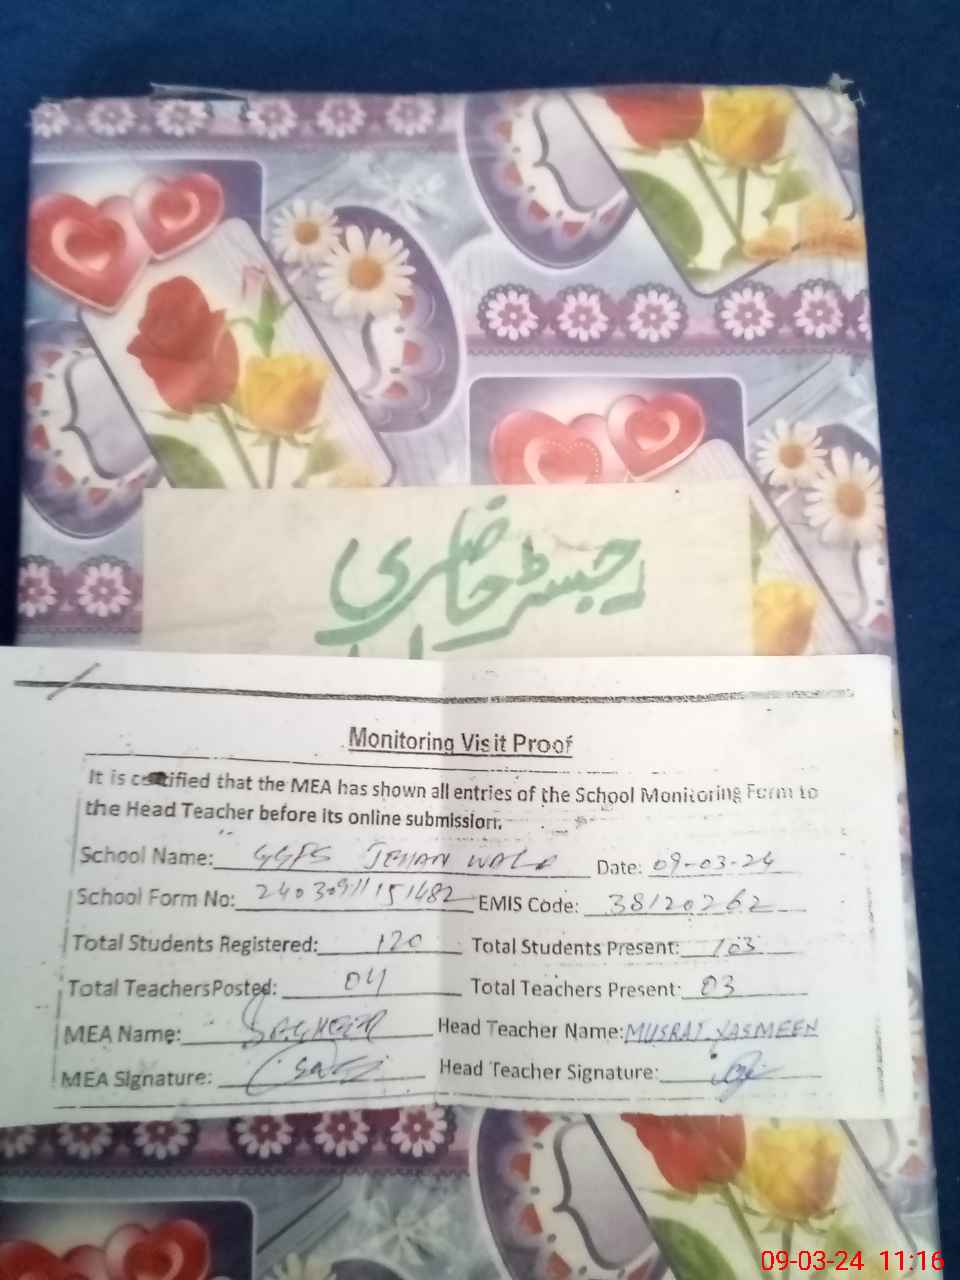 رجسٹر حاضری
Monitoring Visit Proof
It is certified that the MEA has shown all entries of the School Monitoring Form to
the Head Teacher before its online submission.
School Name: GGPS JEHAN WALA Date: 09-03-24
School Form No: 24030911151482 EMIS Code: 38120262
Total Students Registered: 120 Total Students Present: 103
Total TeachersPosted: 04 Total Teachers Present: 03
MEA Name: SAGHEER Head Teacher Name: MUSRAT YASMEEN
MEA Signature: Head Teacher Signature:
09-03-24 11:16